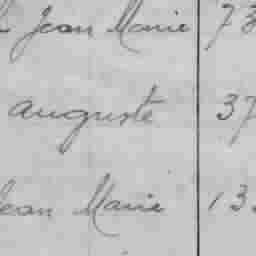 Jean Marie 73
auguste 37
Jean Marie 13